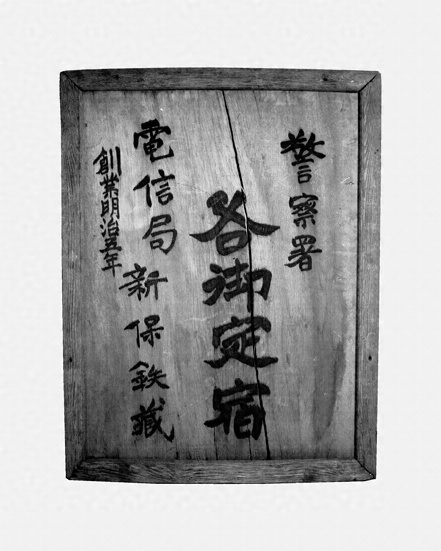 警察署
各御定宿
電信局 新保鉄蔵
創業明治五年